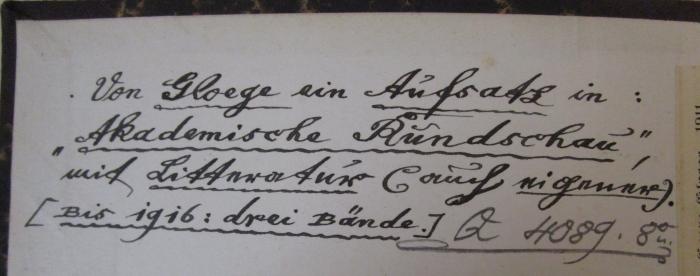 . Von Gloege ein Aufsatz in :
„Akademische Rundschau",
mit Litteratur (auch eigener).
[Bis 1916: drei Bände.] Q 4089. 8º